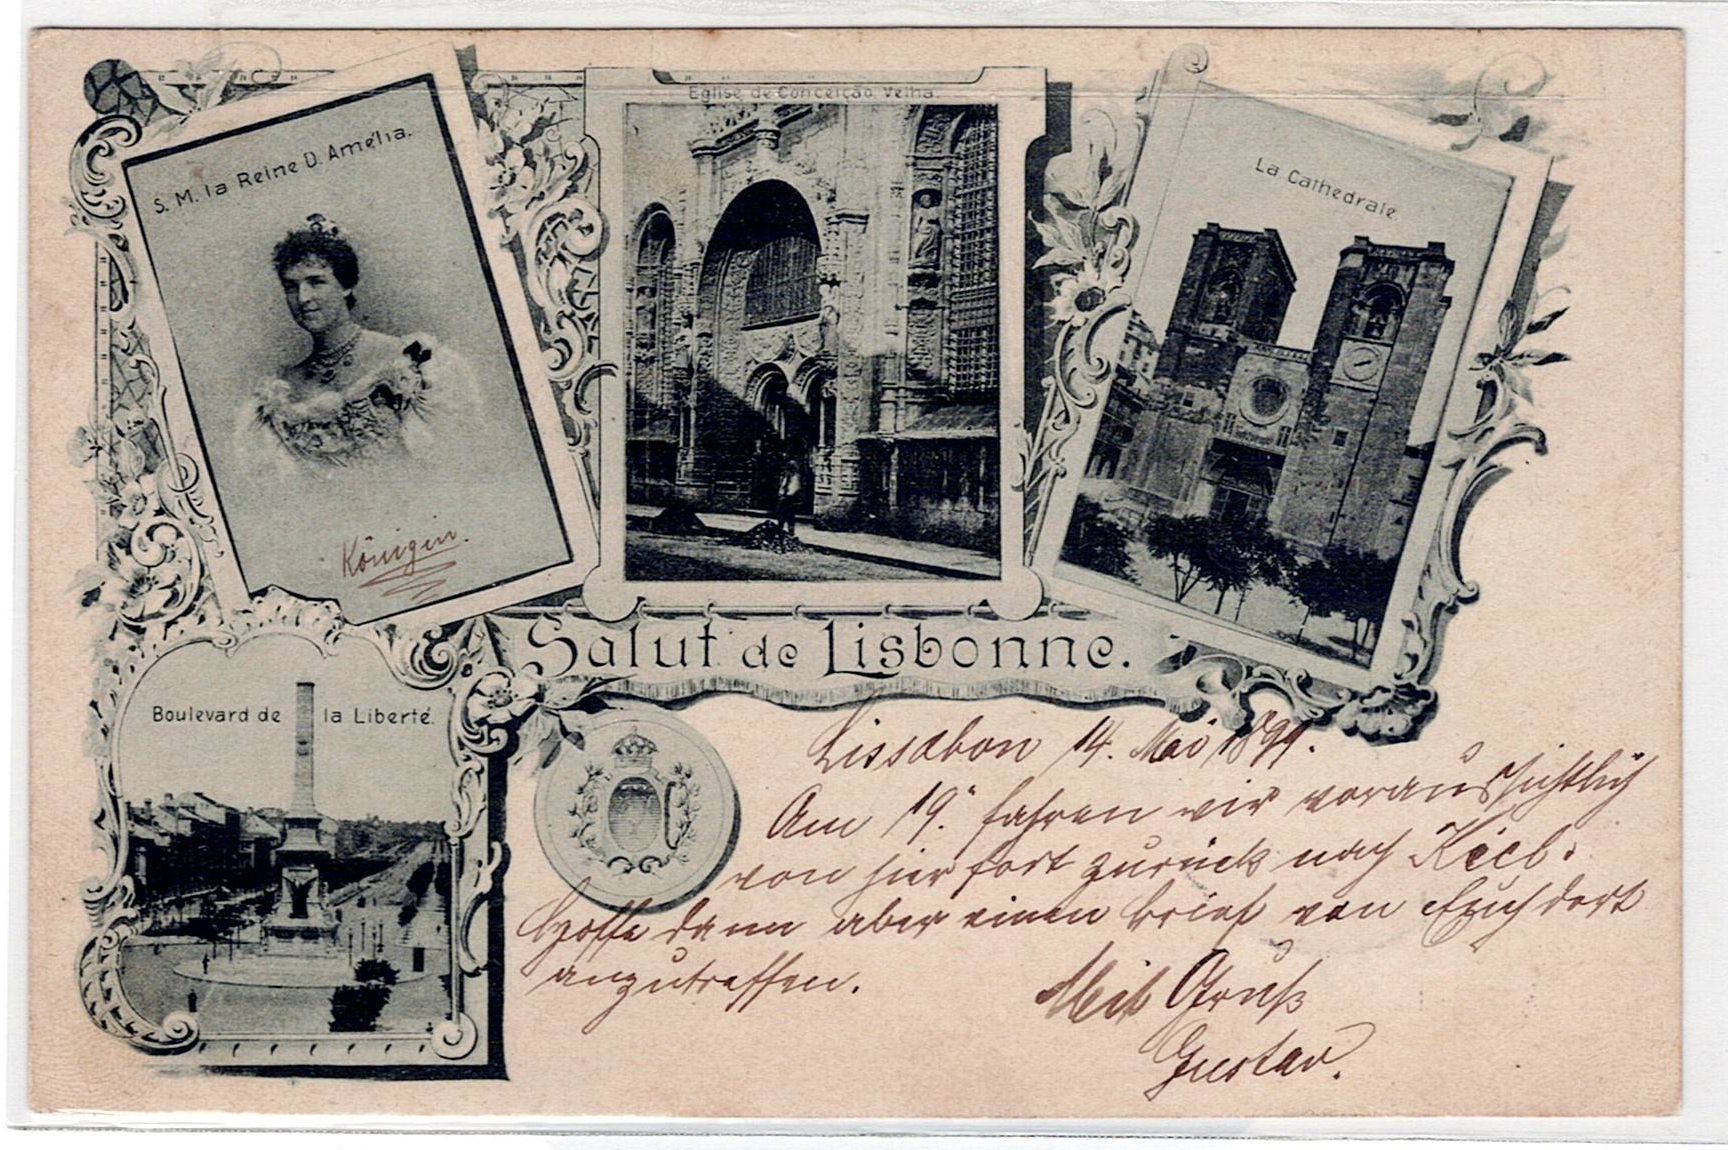 S. M. la Reine D. Amélia.
Eglise de Conceição Velha.
La Cathedrale
Königin.
Salut de Lisbonne.
Boulevard de la Liberté.
Lissabon 14. Mai 1899.
Am 19. fahren wir voraussichtlich
von hier fort zurück nach Kiel.
Hoffe dann aber einen Brief von Euch dort
anzutreffen.
Mit Gruß
Gustav.